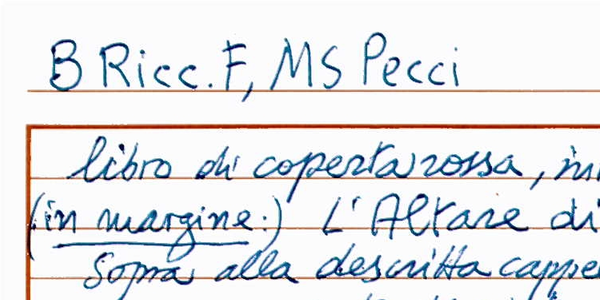 B Ricc. F, MS Pecci
libro di coperta rossa, in
(in margine:) L'Altare di
Sopra alla descritta cappe